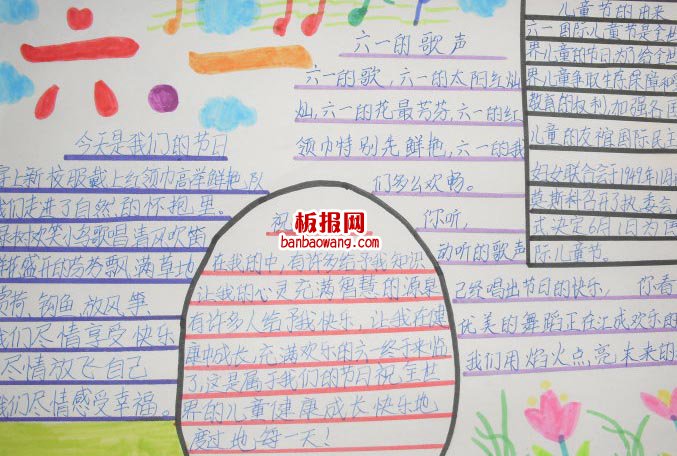 六一
今天是我们的节日
穿上新校服戴上红领巾高举鲜艳队
我们走进了自然的怀抱里。
小鸟歌唱清风吹笛
鲜花盛开的芳芳飘满草地
钓鱼放风筝
我们尽情享受快乐
尽情放飞自己
我们尽情感受幸福。
六一的歌声
六一的歌,六一的太阳红灿
灿,六一的花最芳芬,六一的红
领巾特别先鲜艳,六一的我
们多么欢畅。
你听,
动听的歌声
已经唱出节日的快乐, 你看
优美的舞蹈正在汇成欢乐的
我们用焰火点亮未来的
板报网
banbaowang.com
在我的中,有许多给予我知识
让我的心灵充满智慧的源泉
有许多人给予我快乐,让我在健
康中成长,充满欢乐的六一终于来临
了,这是属于我们的节日祝全世
界的儿童健康成长快乐地
度过地每一天!
儿童节的由来
六一国际儿童节是全世
界儿童的节日为了给全世
界儿童争取生存保障和
教育的权利,加强各国
儿童的友谊国际民主
妇女联合会于1949年11月
莫斯科召开了执委会
式决定6月1日为国
际儿童节。